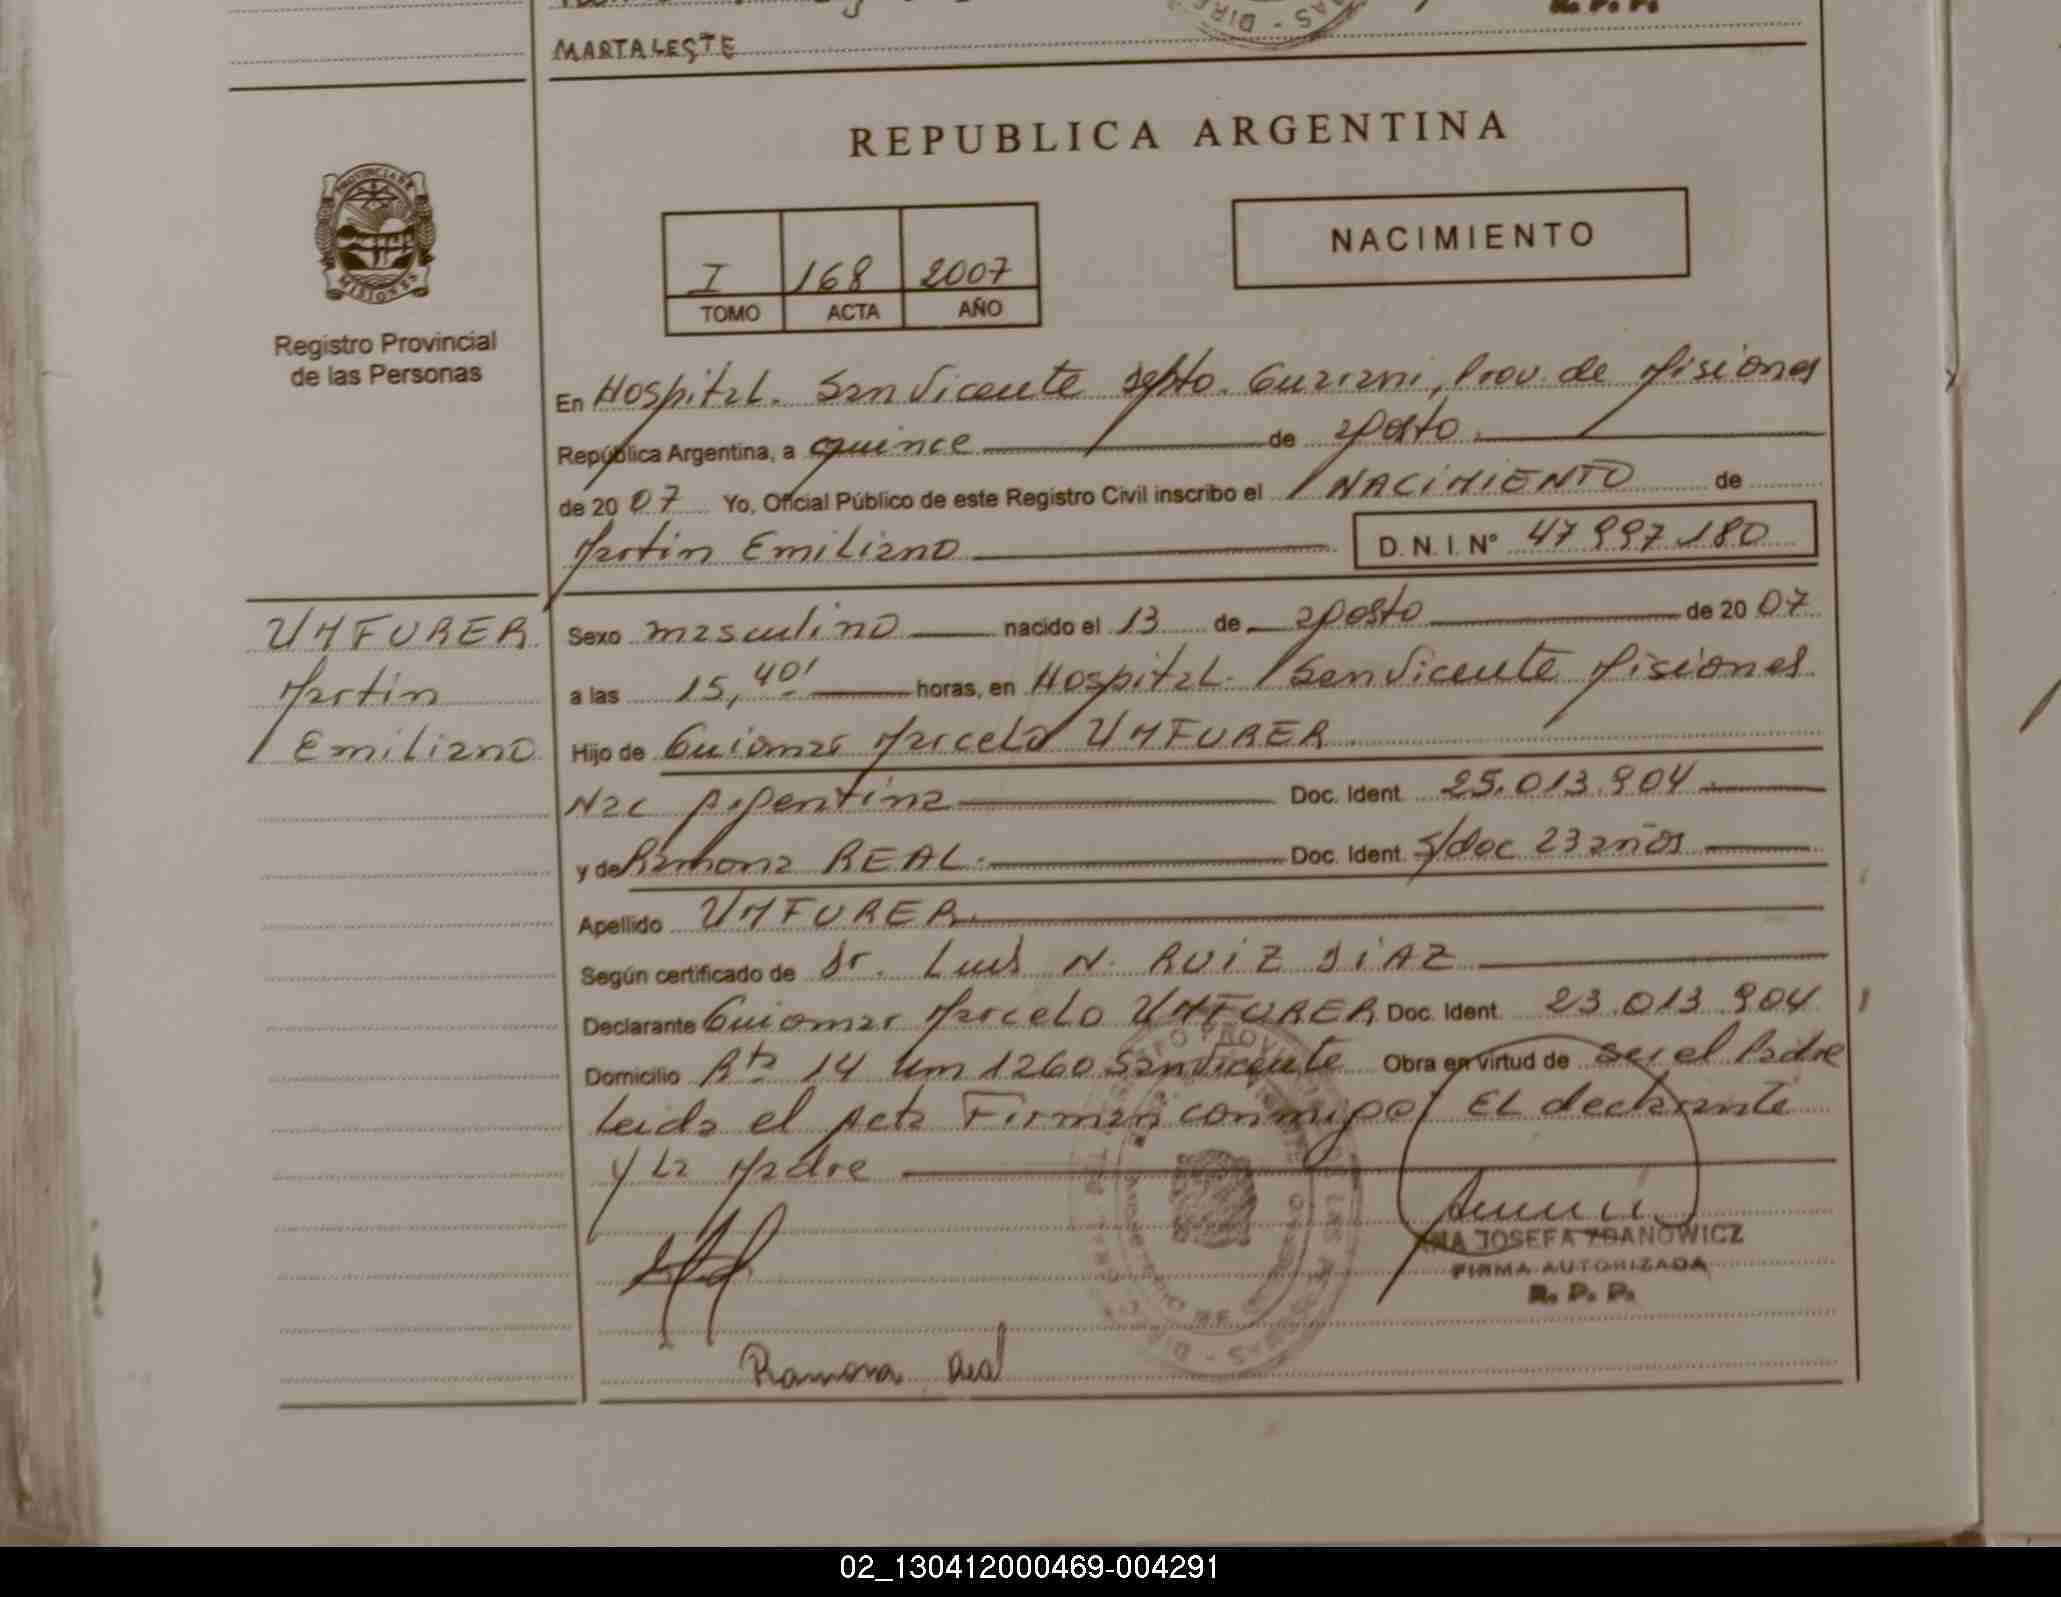 MARTA LESTE
R. P. P.
REPUBLICA ARGENTINA
PROVINCIA DE
MISIONES
Registro Provincial
de las Personas
I 168 2007
TOMO ACTA AÑO
NACIMIENTO
En Hospital. San Vicente Depto. Guarani, Prov. de Misiones
República Argentina, a quince de agosto
de 2007 Yo, Oficial Público de este Registro Civil inscribo el NACIMIENTO de
Martin Emiliano D. N. I. Nº 47 997 180
UMFURER
Martin
Emiliano
Sexo masculino nacido el 13 de agosto de 2007
a las 15,40' horas, en Hospital. San Vicente Misiones
Hijo de Guiomar Marcelo UMFURER
Nac Argentina Doc. Ident. 25.013.904
y de Ramona REAL. Doc. Ident. S/doc 23 años
Apellido UMFURER.
Según certificado de Dr. Luis N. RUIZ DIAZ
Declarante Guiomar Marcelo UMFURER Doc. Ident. 23.013.904
Domicilio Rta 14 km 1260 San Vicente Obra en virtud de ser el Padre
Leida el Acta Firman conmigo EL declarante
y La Madre
ANA JOSEFA ZDANOWICZ
FIRMA AUTORIZADA
R. P. P.
Ramona Real
02_130412000469-004291